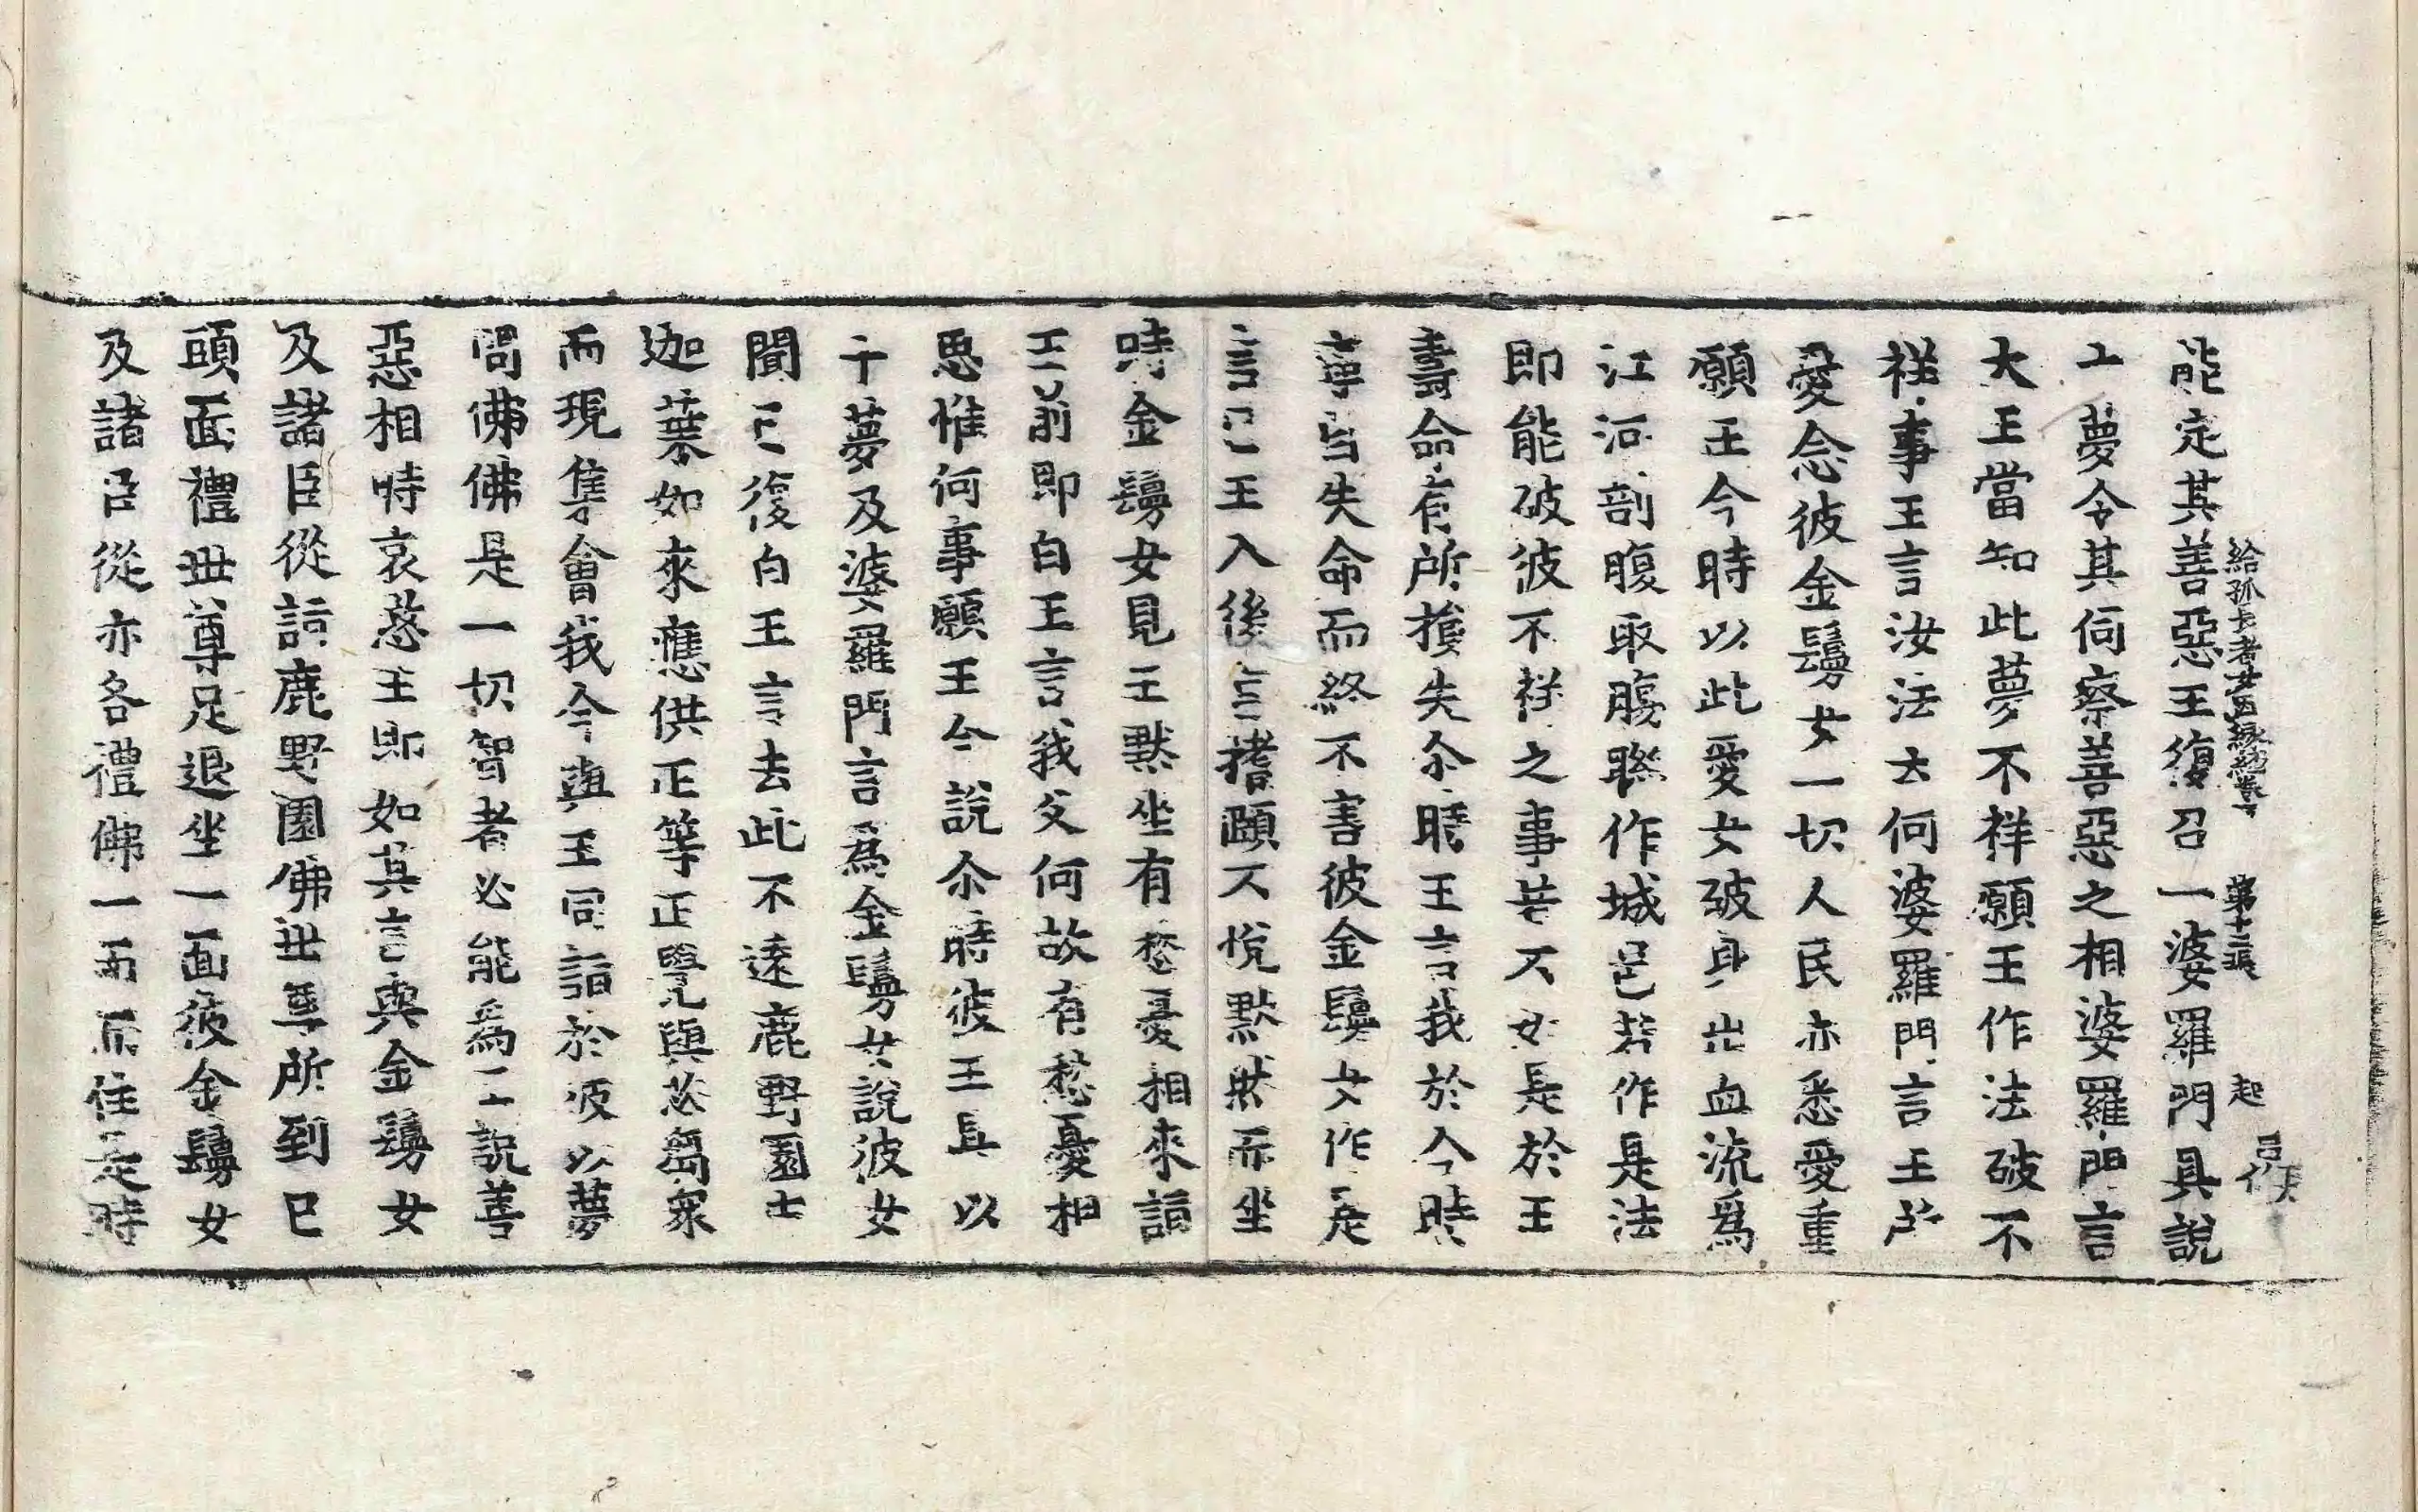 給孤長者女因緣經卷下 第十二張 起
能定其善惡王復召一婆羅門具說
上夢令其伺察善惡之相婆羅門言
大王當知此夢不祥願王作法破不
祥事王言汝法云何婆羅門言王所
愛念彼金鬘女一切人民亦悉愛重
願王今時以此愛女破身出血流爲
江河剖腹取膓聯作城邑若作是法
即能破彼不祥之事若不如是於王
壽命有所損失尒時王言我於今時
寧自失命而終不害彼金鬘女作是
言已王入後宮搘頤不悅默然而坐
時金鬘女見王默坐有愁憂相來詣
王前即白王言我父何故有愁憂相
思惟何事願王今說尒時彼王具以
十夢及婆羅門言爲金鬘女說彼女
聞已復白王言去此不遠鹿野園中
迦葉如來應供正等正覺與苾芻衆
而現集會我今與王同詣於彼以夢
問佛佛是一切智者必能爲王說善
惡相時哀愍王即如其言與金鬘女
及諸臣從詣鹿野園佛世尊所到已
頭面禮世尊足退坐一面彼金鬘女
及諸臣從亦各禮佛一面而住是時